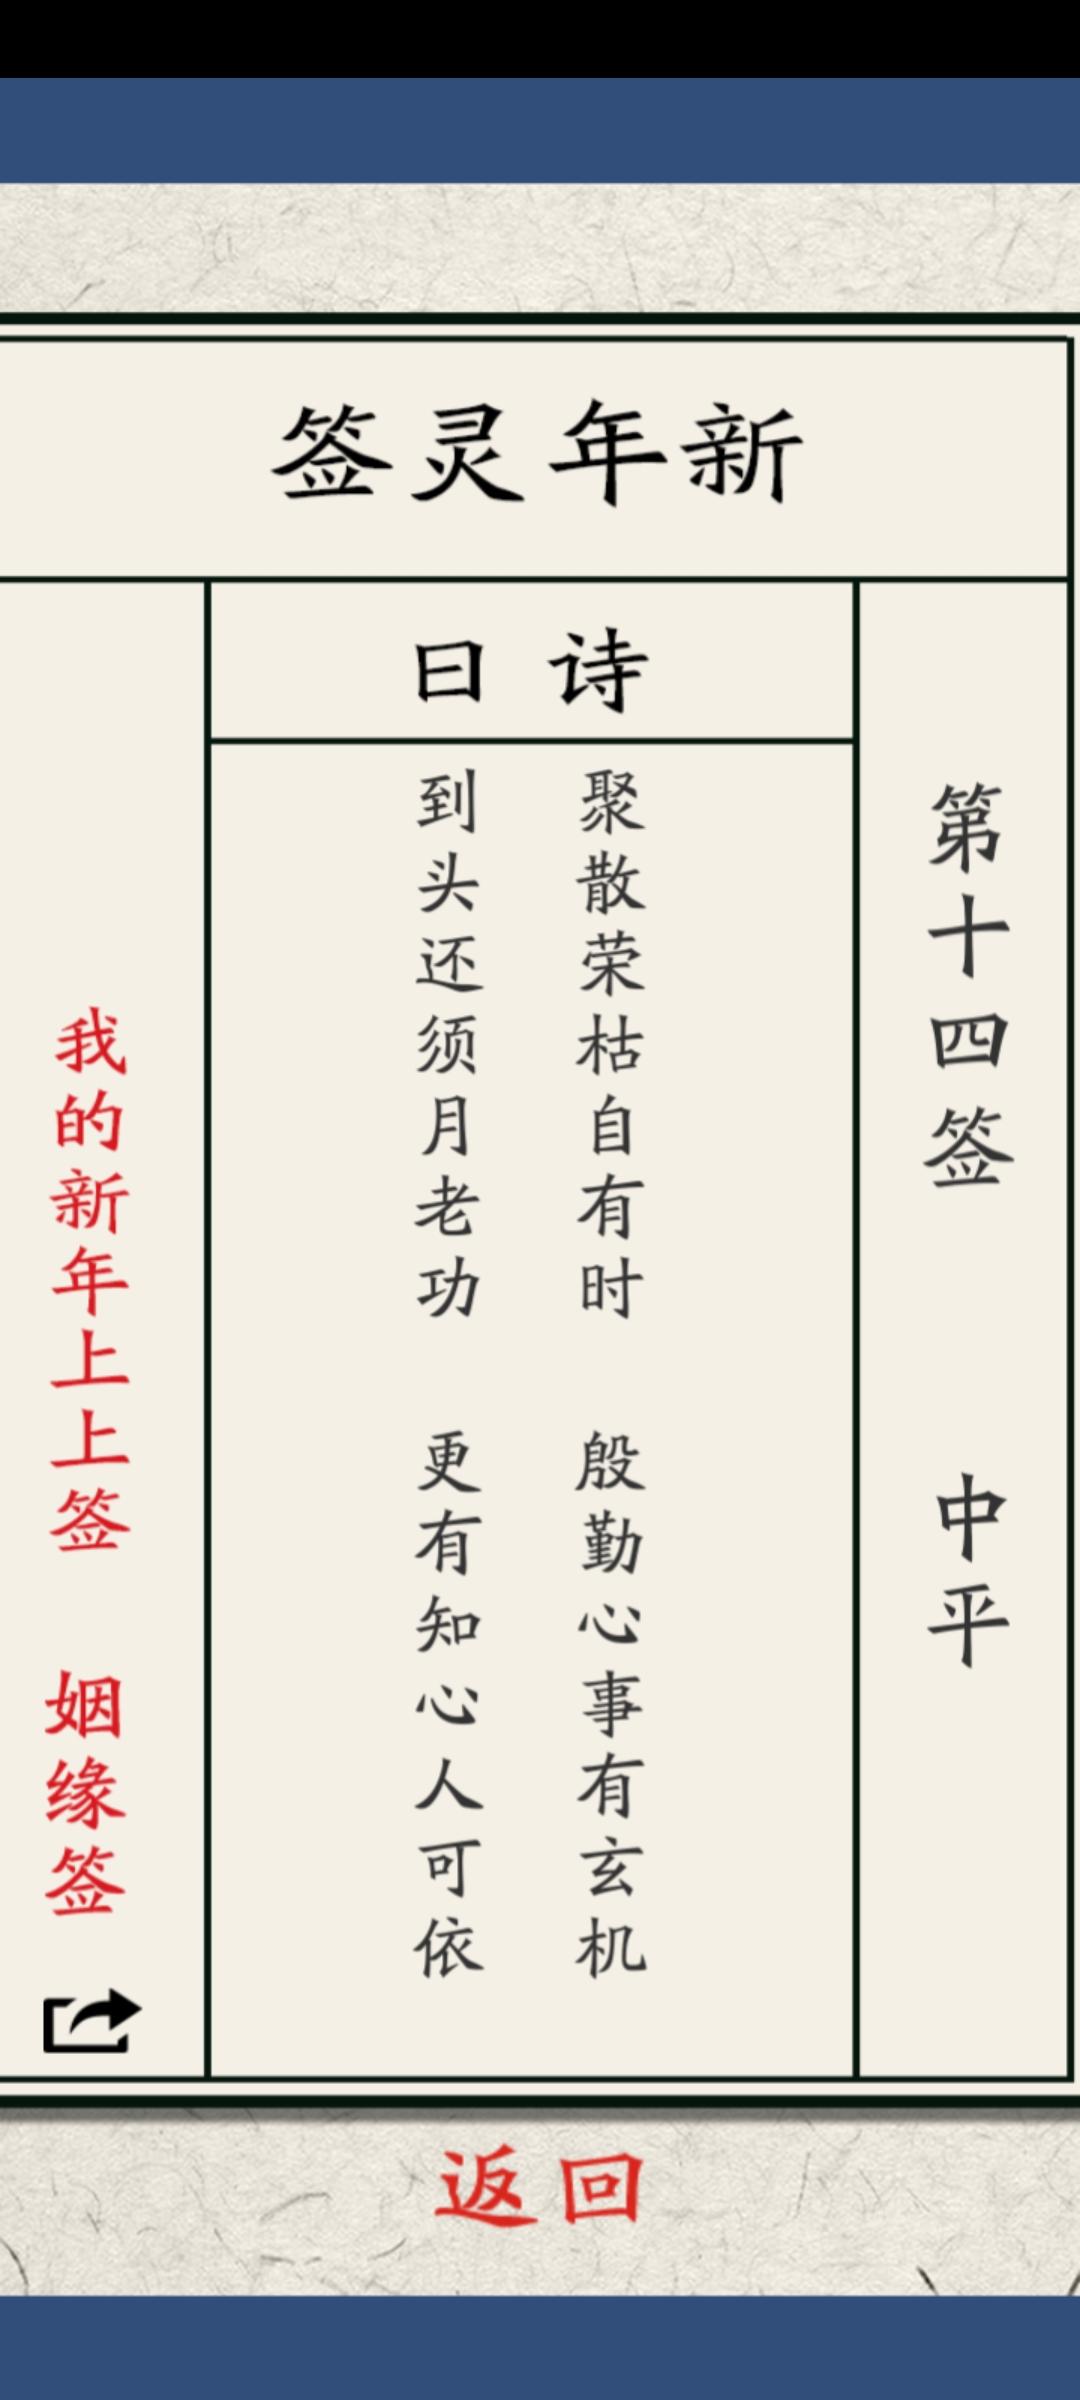 新年灵签
第十四签 中平
诗曰
聚散荣枯自有时 殷勤心事有玄机
到头还须月老功 更有知心人可依
我的新年上上签 姻缘签
返回